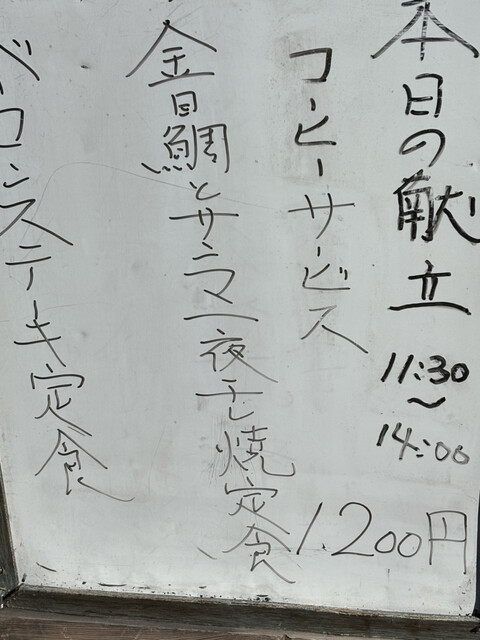 本日の献立
11:30
~
14:00
コーヒーサービス
金目鯛とサンマ一夜干し焼定食
1.200円
ベーコンステーキ定食